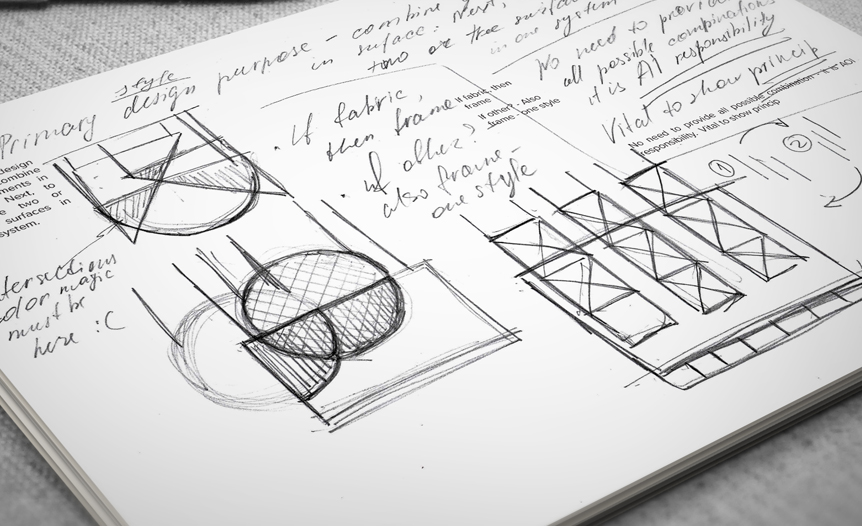 style
Primary design purpose – combine
in surface. Next,
two or thee surfaces
in one system
No need to provide
all possible combinations
it is AI responsibility
Vital to show princip
No need to provide all possible combination - it is AOI
responsibility. Vital to show princop
· If fabric,
then frame
· if other?
also frame –
one style
If fabric, then
frame
If other? . Also
frame - one style
design
combine
ments in
Next. to
two or
surfaces in
system.
color magic
must be
here :C
1
2